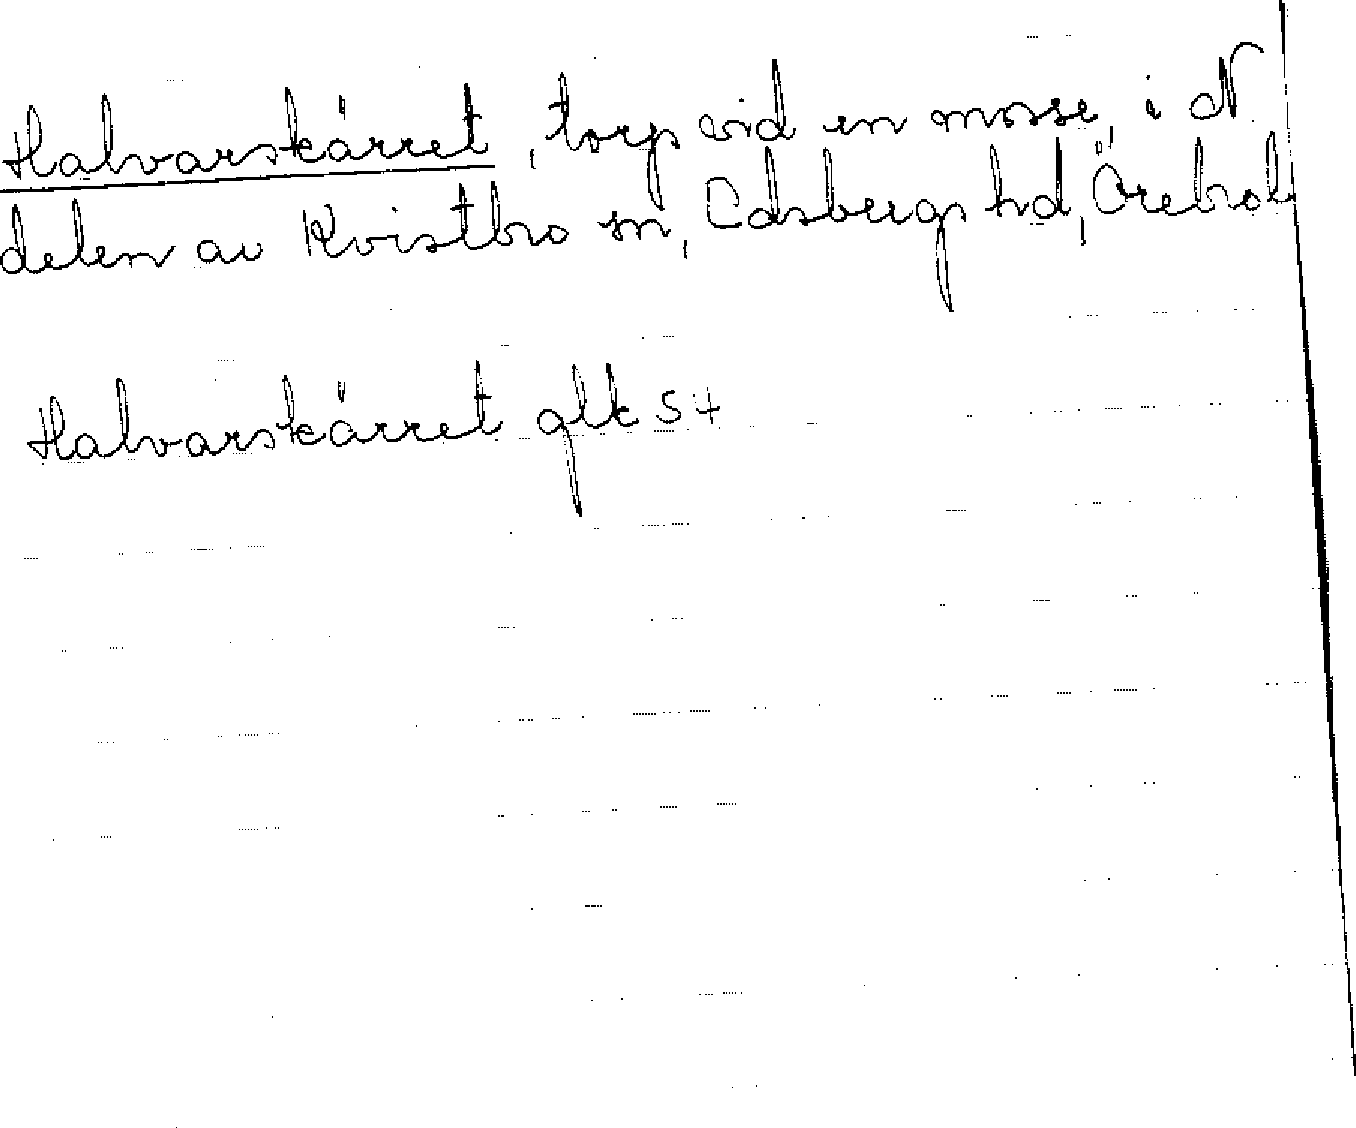 Halvarskärret, torp vid en mosse, i N.
delen av Kvistbro sn, Edsbergs hd, Örebro l
Halvarskärret glk S4